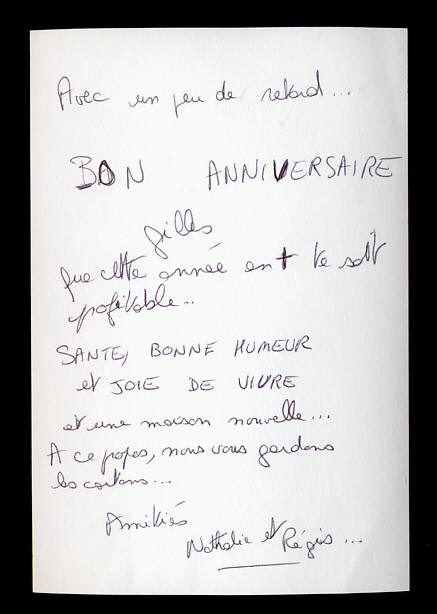 Avec un peu de retard...
BON ANNIVERSAIRE
Gilles
Que cette année en + te soit
profitable...
SANTE, BONNE HUMEUR
et JOIE DE VIVRE
et une maison nouvelle...
A ce propos, nous vous gardons
les cartons...
Amitiés
Nathalie et Régis...